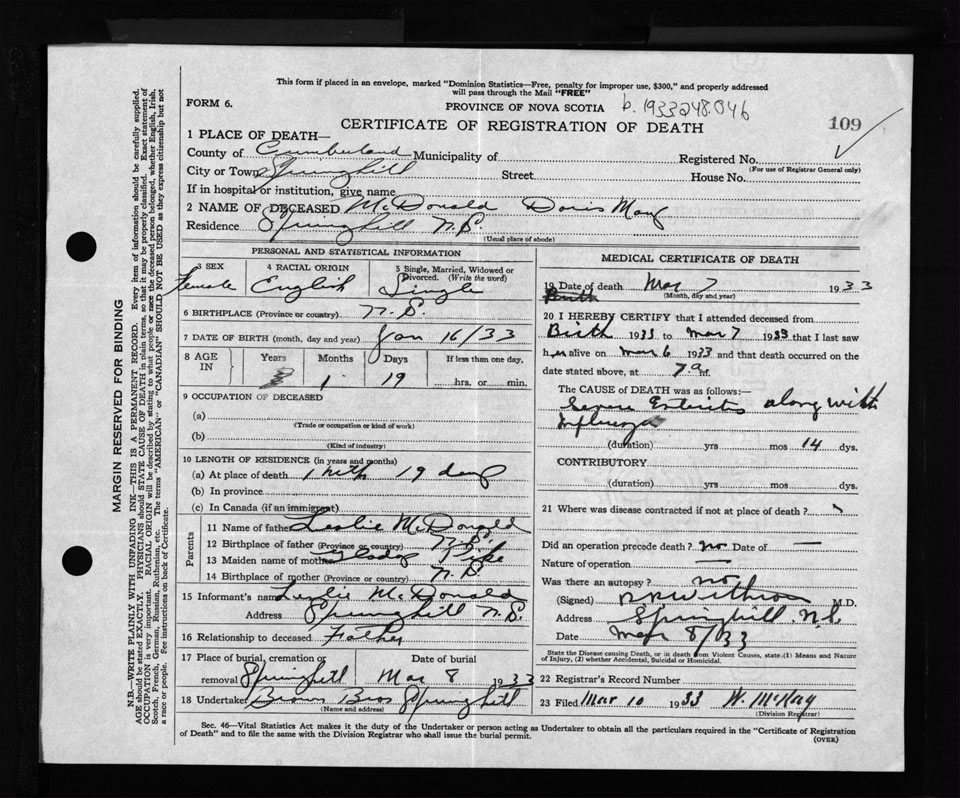 This form if placed in an envelope, marked "Dominion Statistics—Free, penalty for improper use, $300," and properly addressed
will pass through the Mail "FREE"
FORM 6.
PROVINCE OF NOVA SCOTIA
b. 1933248.046
CERTIFICATE OF REGISTRATION OF DEATH
109
1 PLACE OF DEATH—
County of Cumberland Municipality of Registered No.
(For use of Registrar General only)
City or Town Springhill Street House No.
If in hospital or institution, give name
2 NAME OF DECEASED McDonald Doris May
Residence Springhill N.S.
(Usual place of abode)
PERSONAL AND STATISTICAL INFORMATION
3 SEX 4 RACIAL ORIGIN 5 Single, Married, Widowed or Divorced. (Write the word)
Female English Single
6 BIRTHPLACE (Province or country) N.S.
7 DATE OF BIRTH (month, day and year) Jan 16/33
8 AGE IN Years Months Days If less than one day,
1 19 hrs. or min.
9 OCCUPATION OF DECEASED
(a)
(Trade or occupation or kind of work)
(b)
(Kind of industry)
10 LENGTH OF RESIDENCE (in years and months)
(a) At place of death 1 mth 19 days
(b) In province
(c) In Canada (if an immigrant)
Parents
11 Name of father Leslie McDonald
12 Birthplace of father (Province or country) N.S.
13 Maiden name of mother Gladys
14 Birthplace of mother (Province or country) N.S.
15 Informant's name Leslie McDonald
Address Springhill N.S.
16 Relationship to deceased Father
17 Place of burial, cremation or Date of burial
removal Springhill Mar 8 1933
18 Undertaker Brown Bros Springhill
(Name and address)
MEDICAL CERTIFICATE OF DEATH
19 Date of death Mar 7 1933
Birth (Month, day and year)
20 I HEREBY CERTIFY that I attended deceased from
Birth 1933 to Mar 7 1933 that I last saw
her alive on Mar 6 1933 and that death occurred on
date stated above, at 7 a m.
The CAUSE of DEATH was as follows:—
Severe Enteritis along with
Influenza
(duration) yrs mos 14 dys.
CONTRIBUTORY
(duration) yrs mos dys.
21 Where was disease contracted if not at place of death?
Did an operation precede death? no Date of —
Nature of operation —
Was there an autopsy? no
(Signed) Withrow M.D.
Address Springhill N.S.
Date Mar 8/33
State the Disease causing Death, or in death from Violent Causes, state (1) Means and Nature
of Injury, (2) whether Accidental, Suicidal or Homicidal.
22 Registrar's Record Number
23 Filed Mar 10 1933 W. McKay
(Division Registrar)
Sec. 46—Vital Statistics Act makes it the duty of the Undertaker or person acting as Undertaker to obtain all the particulars required in the "Certificate of Registration
of Death" and to file the same with the Division Registrar who shall issue the burial permit.
(OVER)
MARGIN RESERVED FOR BINDING
N.B.—WRITE PLAINLY WITH UNFADING INK—THIS IS A PERMANENT RECORD. Every item of information should be carefully supplied.
AGE should be stated EXACTLY. PHYSICIANS should STATE CAUSE OF DEATH in plain terms, so that it may be properly classified. Exact statement of
OCCUPATION is very important. RACIAL ORIGIN will be described by stating to what people or race the deceased person belonged, whether English, Irish,
Scotch, French, German, Russian, Ruthenian, etc. The terms "AMERICAN" or "CANADIAN" SHOULD NOT BE USED as they express citizenship but not
a race or people. See instructions on back of Certificate.